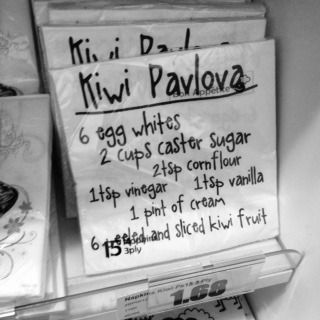 Kiwi Pavlova
Kiwi Pavlova
Bon Appetite
6 egg whites
2 cups caster sugar
2tsp cornflour
1tsp vinegar 1tsp vanilla
1 pint of cream
6 peeled and sliced kiwi fruit
15 napkins
3ply
Napkins Kiwi Pk15 3Ply
1.68